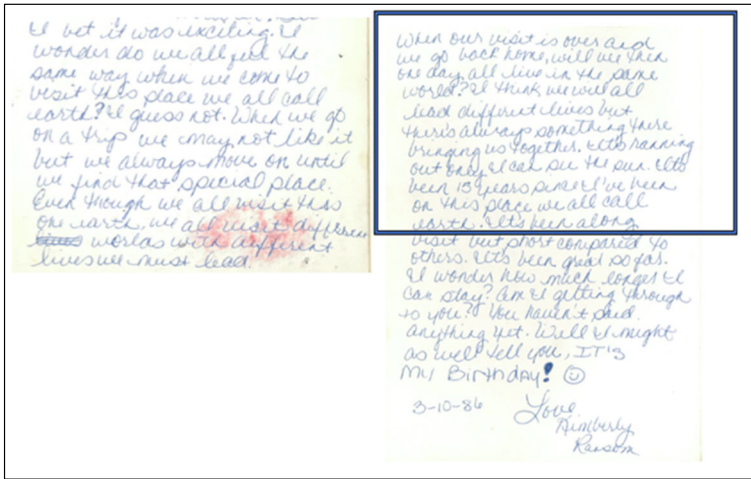 I bet it was exciting. I
wonder do we all feel the
same way when we come to
visit this place we all call
earth? I guess not. When we go
on a trip we may not like it
but we always move on until
we find that special place.
Even though we all visit this
one earth, we all visit different
worlds with different
lives we must lead.
When our visit is over and
we go back home, will we then
one day all live in the same
world? I think we will all
lead different lives but
there's always something there
bringing us together. It's ranning
out only I can see the sun. It's
been 15 years since I've been
on this place we all call
earth. It's been along
visit but short compared to
others. It's been great so far.
I wonder how much longer I
can stay? Am I getting through
to you? You haven't said
anything yet. Well I might
as well tell you, IT'S
MY BIRTHDAY! ☺
3-10-86 Love
Kimberly
Ransom